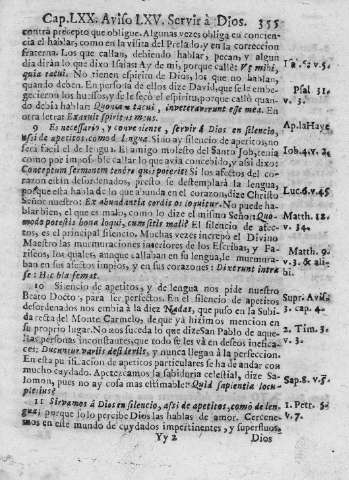 Cap.LXX. Aviso LXV. Servir à Dios. 355
contra precepto que obligue. Algunas vezes obliga en concien-
cia el hablar; como en la visita del Prelado, y en la correccion
fraterna. Los que callan, debiendo hablar, pecan, y algun
dia dirán lo que dixo Isaìas: Ay de mi, porque callè: Væ mihi,
quia tacui. No tienen espiritu de Dios, los que no hablan,
quando deben. En persona de ellos dize David, que se le embe-
gecieron los huessos, y se secò el espiritu, porque callò quan-
do debia hablar: Quoniam tacui, inveteraverunt ossa mea. En
otra letras: Exaruit spiritus meus.
9 Es necessario, y conveniente, servir à Dios en silencio,
assi de apetitos, como de lengua. Sino ay silencio de apetitos, no
serà facil el de lengua. El amigo molesto del Santo Job, tenia
como por impossible callar lo que avia concebido, y assi dixo:
Conceptum sermonem tenere quis poterit? Si los afectos del co-
razon estàn desordenados, presto se destemplarà la lengua,
porque esta habla de lo que abunda en el corazon, dize Christo
Señor nuestro: Ex abundantia cordis os loquitur. No puede ha-
blar bien, el que es malo, como lo dize el mismo Señor: Quo-
modo potestis bona loqui, cum sitis mali? El silencio de afec-
tos, es el principal silencio. Muchas vezes increpò el Divino
Maestro las murmuraciones interiores de los Escribas, y Fa-
riseos, los quales, aunque callaban en su lengua, le murmura-
ban en sus afectos impios, y en sus corazones: Dixerunt intra
se: Hic blasfemat.
10 Silencio de apetitos, y de lengua nos pide nuestro
Beato Doctor, para ser perfectos. En el silencio de apetitos
desordenados nos embia à la diez Nadas, que puso en la Subi-
da recta del Monte Carmelo, de que yà hizimos mencion en
su proprio lugar. No nos suceda lo que dize San Pablo de aque-
llas personas inconstantes, que todo se les và en deseos inefica-
ces: Ducuntur variis desideriis, y nunca llegan à la perfeccion.
En esta purificacion de apetitos particulares se hà de andar con
mucho cuydado. Apetezcamos la sabiduria celestial, dize Sa-
lomon, pues no ay cosa mas estimable: Quid sapientia locu-
pletius?
11 Sirvamos à Dios en silencio, assi de apetitos, como de len-
gua, porque solo percibe Dios las hablas de amor. Cercene-
mos en este mundo de cuydados impertinentes, y superfluos,
Yy 2 Dios
Isai. 6. v. 5.
Psal. 31.
v. 3.
Ap. la Haye
Iob. 4. v. 2.
Luc. 6. v. 45
Matth. 12.
v. 34.
Matth. 9.
v. 3. & ali-
bi.
Supr. Avis.
3. cap. 4.
2. Tim. 3.
v. 3.
Sap. 8. v. 5.
1. Petr. 5.
v. 7.